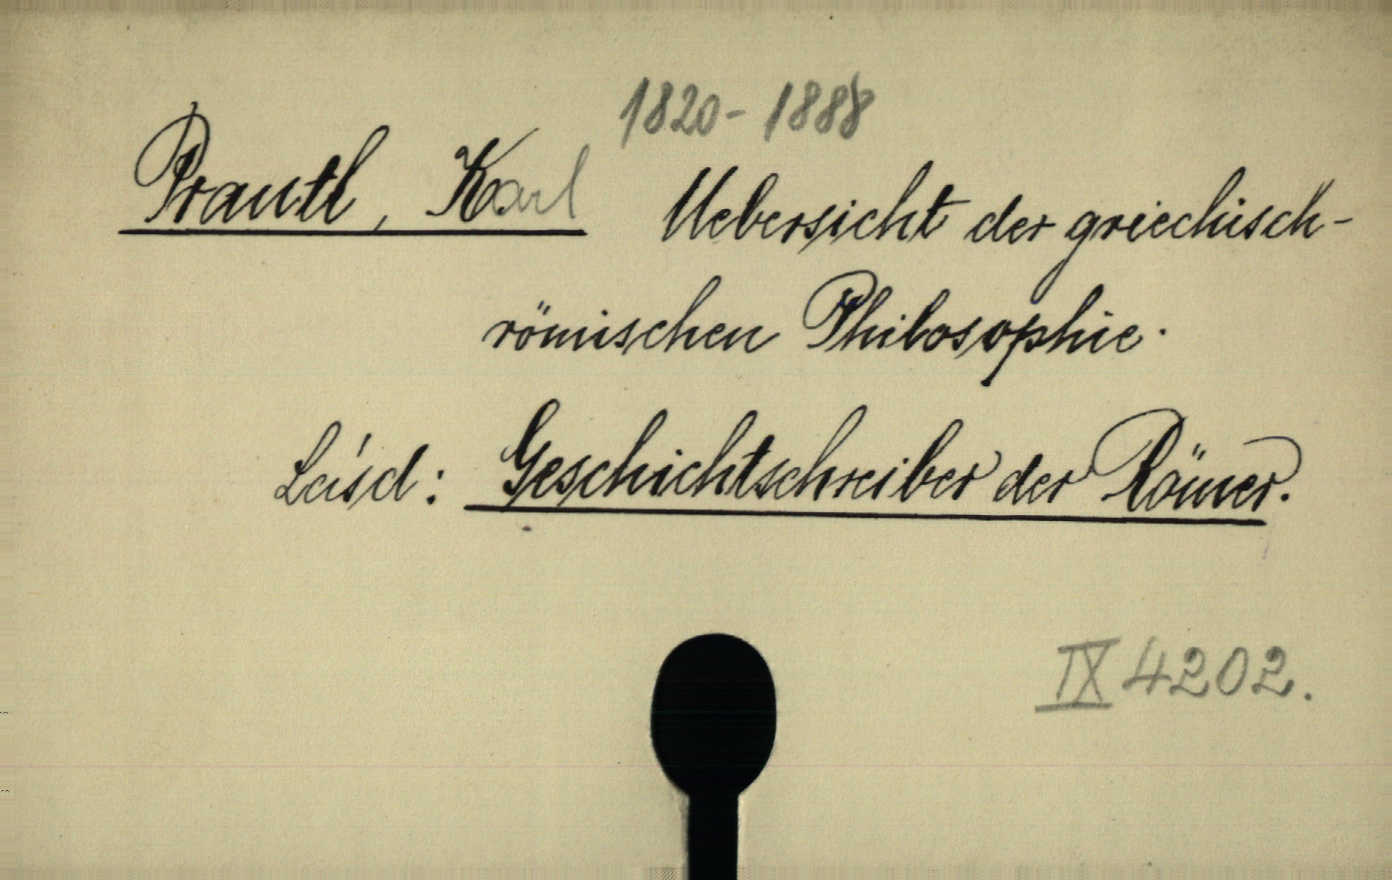 1820-1888
Prantl, Karl Uebersicht der griechisch-
römischen Philosophie.
Lásd: Geschichtschreiber der Römer.
IX 4202.